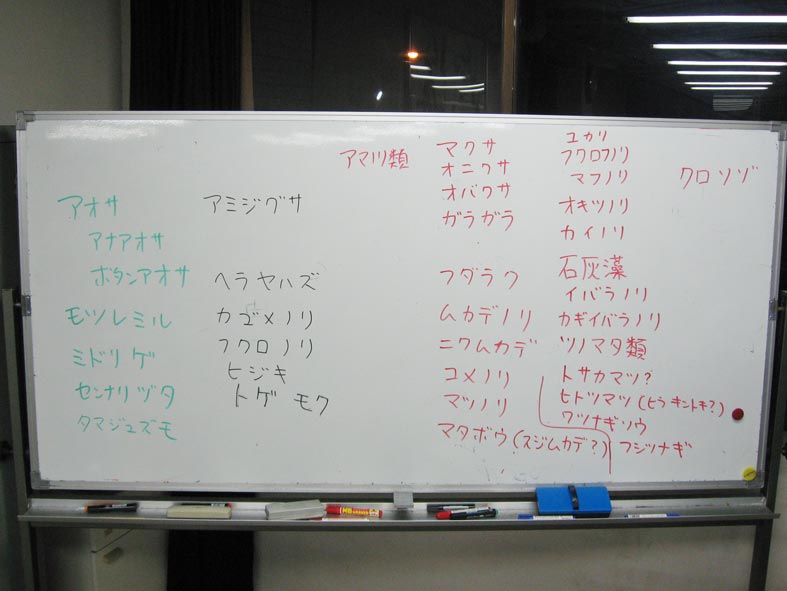 アオサ
アナアオサ
ボタンアオサ
モツレミル
ミドリゲ
センナリヅタ
タマジュズモ
アミジグサ
ヘラヤハズ
カゴメノリ
フクロノリ
ヒジキ
トゲモク
アマノリ類
マクサ
オニクサ
オバクサ
ガラガラ
フダラク
ムカデノリ
ニクムカデ
コメノリ
マツノリ
マタボウ(スジムカデ?)
ユカリ
フクロフノリ
マフノリ
オキツノリ
カイノリ
石灰藻
イバラノリ
カギイバラノリ
ツノマタ類
トサカマツ?
ヒトツマツ(ヒラキントキ?)
ワツナギソウ
フジツナギ
クロソゾ